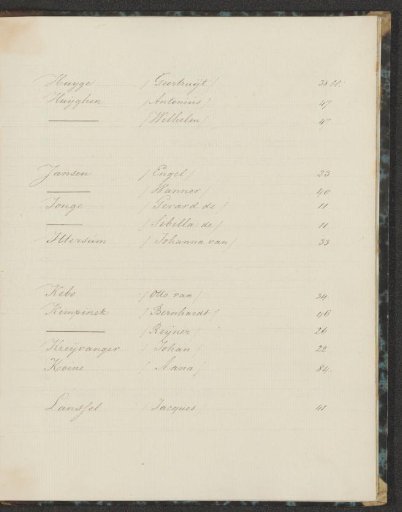 Huyge (Geertruijt) 38.
Huyghen (Antonius) 47
——— (Wilhelm) 47
Jansen (Engel) 23
——— (Wanner) 40
Jonge (Gerard de) 11
——— (Sibella de) 11
Ittersum (Johanna van) 33
Kebe (Otto van) 34
Kempinck (Bernhardt) 46
——— (Reijner) 26
Kreijvanger (Johan) 22
(Anna) 84
Lanssel (Jacques 41